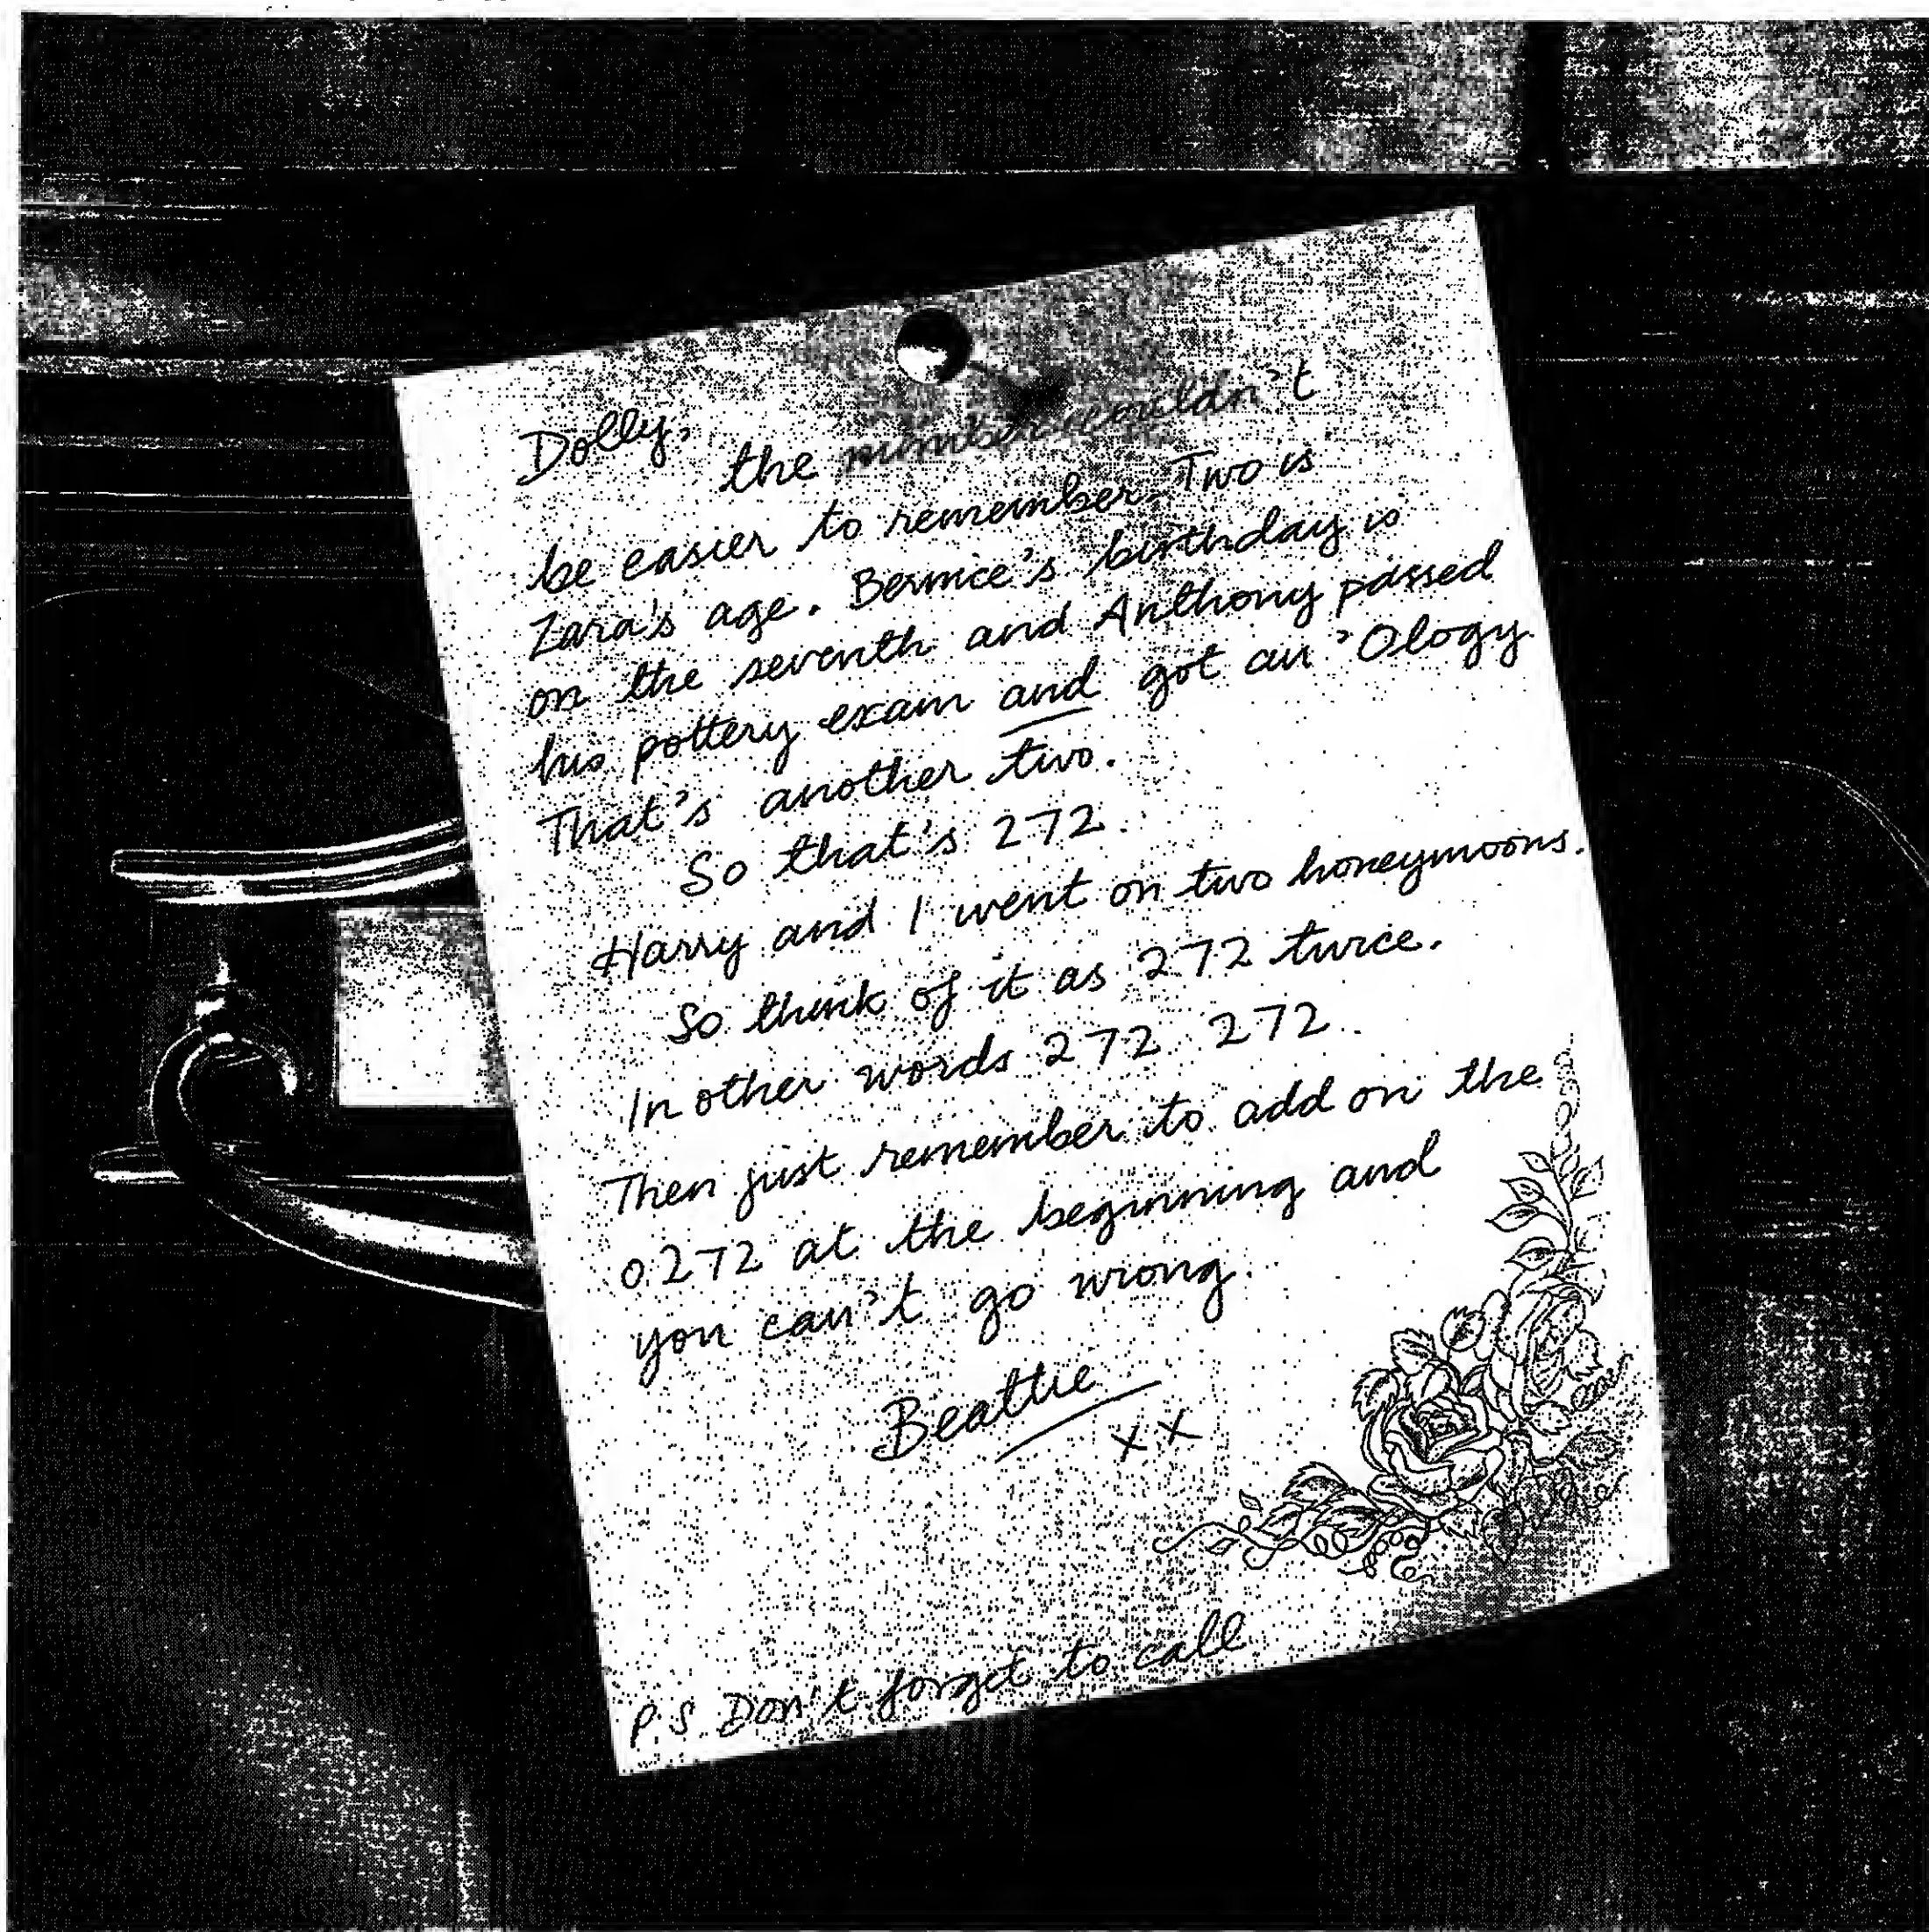 Dolly,
the number couldn't
be easier to remember. Two is
Zara's age. Bernice's birthday is
on the seventh and Anthony passed
his pottery exam and got an 'Ology.
That's another two.
So that's 272.
Harry and I went on two honeymoons.
So think of it as 272 twice.
In other words 272 272.
Then just remember to add on the
0272 at the beginning and
you can't go wrong.
Beattie
x x
P.S. Don't forget to call